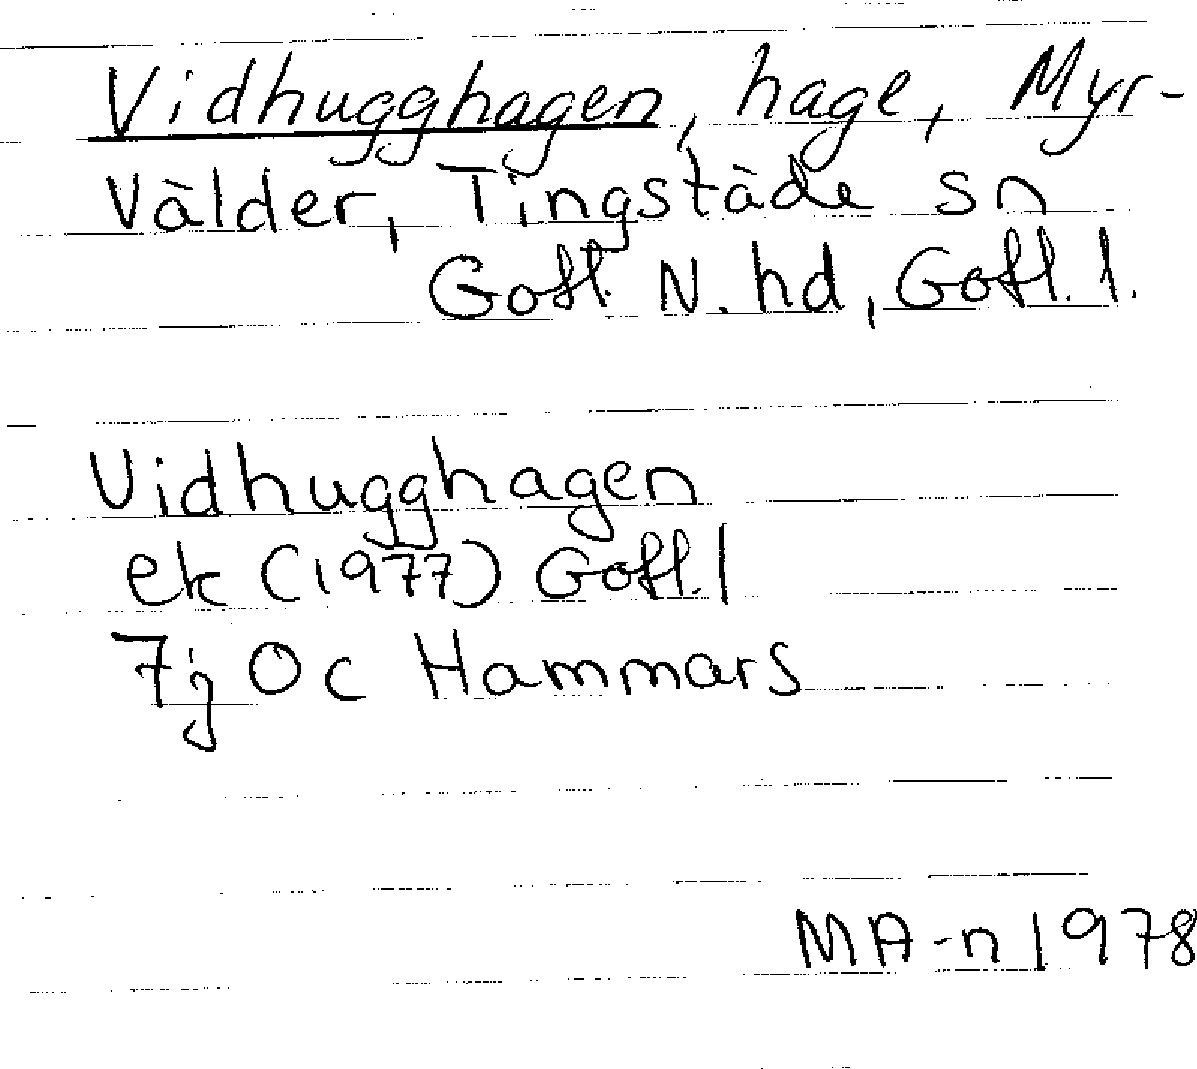 Vidhugghagen, hage, Myr-
välder, Tingstäde sn
Gotl. N. hd, Gotl. l.
Vidhugghagen
ek (1977) Gotl. l
7j 0c Hammars
MA-n 1978